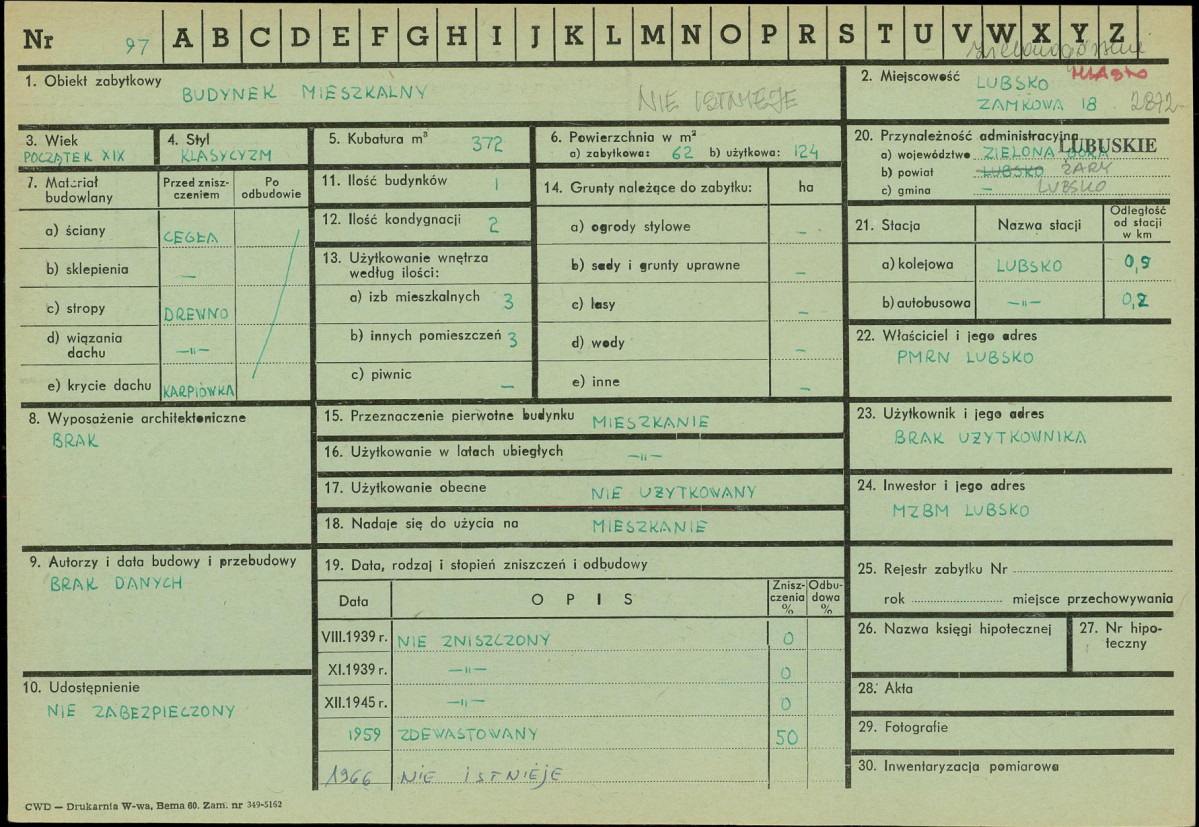 Nr 97 A B C D E F G H I J K L M N O P R S T U V W X Y Z
zielonogórskie
1. Obiekt zabytkowy
BUDYNEK MIESZKALNY
NIE ISTNIEJE
2. Miejscowość
LUBSKO MIASTO
ZAMKOWA 18 2872
3. Wiek
POCZĄTEK XIX
4. Styl
KLASYCYZM
5. Kubatura m³ 372
6. Powierzchnia w m²
a) zabytkowa: 62 b) użytkowa: 124
20. Przynależność administracyjna
LUBUSKIE
a) województwo ZIELONA GÓRA
b) powiat LUBSKO ŻARY
c) gmina – LUBSKO
7. Materiał budowlany
Przed zniszczeniem
Po odbudowie
a) ściany CEGŁA
b) sklepienia –
c) stropy DREWNO
d) wiązania dachu –"–
e) krycie dachu KARPIÓWKA
11. Ilość budynków 1
12. Ilość kondygnacji 2
13. Użytkowanie wnętrza
według ilości:
a) izb mieszkalnych 3
b) innych pomieszczeń 3
c) piwnic –
14. Grunty należące do zabytku: ha
a) ogrody stylowe –
b) sady i grunty uprawne –
c) lasy –
d) wody –
e) inne –
21. Stacja
Nazwa stacji
Odległość od stacji w km
a) kolejowa LUBSKO 0,9
b) autobusowa –"– 0,2
22. Właściciel i jego adres
PMRN LUBSKO
8. Wyposażenie architektoniczne
BRAK
15. Przeznaczenie pierwotne budynku MIESZKANIE
16. Użytkowanie w latach ubiegłych –"–
17. Użytkowanie obecne NIE UŻYTKOWANY
18. Nadaje się do użycia na MIESZKANIE
23. Użytkownik i jego adres
BRAK UŻYTKOWNIKA
24. Inwestor i jego adres
MZBM LUBSKO
9. Autorzy i data budowy i przebudowy
BRAK DANYCH
19. Data, rodzaj i stopień zniszczeń i odbudowy
Data OPIS Zniszczenia % Odbudowa %
VIII.1939 r. NIE ZNISZCZONY 0
XI.1939 r. –"– 0
XII.1945 r. –"– 0
1959 ZDEWASTOWANY 50
1966 NIE ISTNIEJE
25. Rejestr zabytku Nr
rok miejsce przechowywania
26. Nazwa księgi hipotecznej
27. Nr hipoteczny
10. Udostępnienie
NIE ZABEZPIECZONY
28. Akta
29. Fotografie
30. Inwentaryzacja pomiarowa
CWD — Drukarnia W-wa, Bema 60. Zam. nr 349-5162